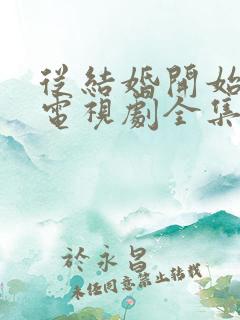 從結婚開始
電視劇全集
於永昌
未任同意禁止转载